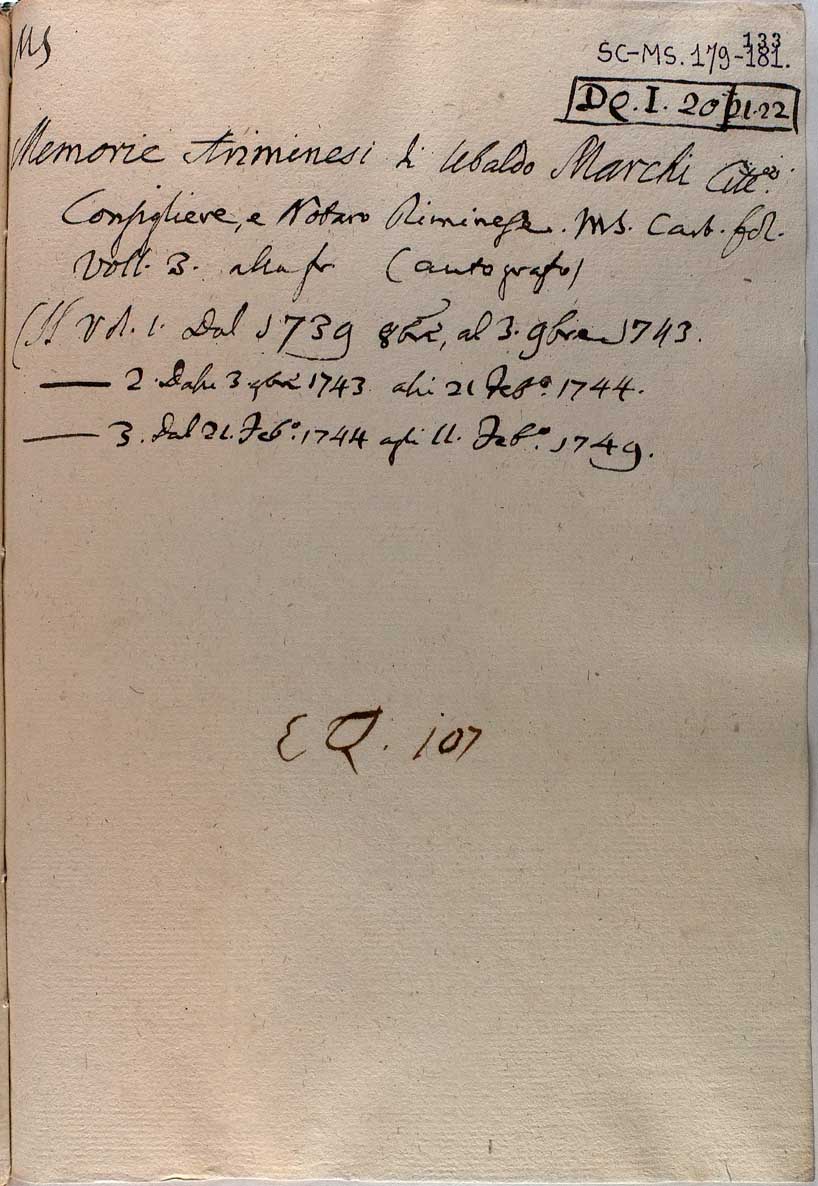 MS
133
SC-MS. 179-181.
DQ. I. 20 21. 22
Memorie Ariminesi di Ubaldo Marchi Citt.no
Consigliere, e Notaro Riminese. MS. Cart. fol.
Voll. 3. (autografo)
Vol. 1. Dal 1739 8bre, al 3. 9bre 1743.
— 2. Dalli 3 9bre 1743 alli 21 Feb.o 1744.
— 3. Dal 21. Feb.o 1744 agli 11. Feb.o 1749.
EQ. 107